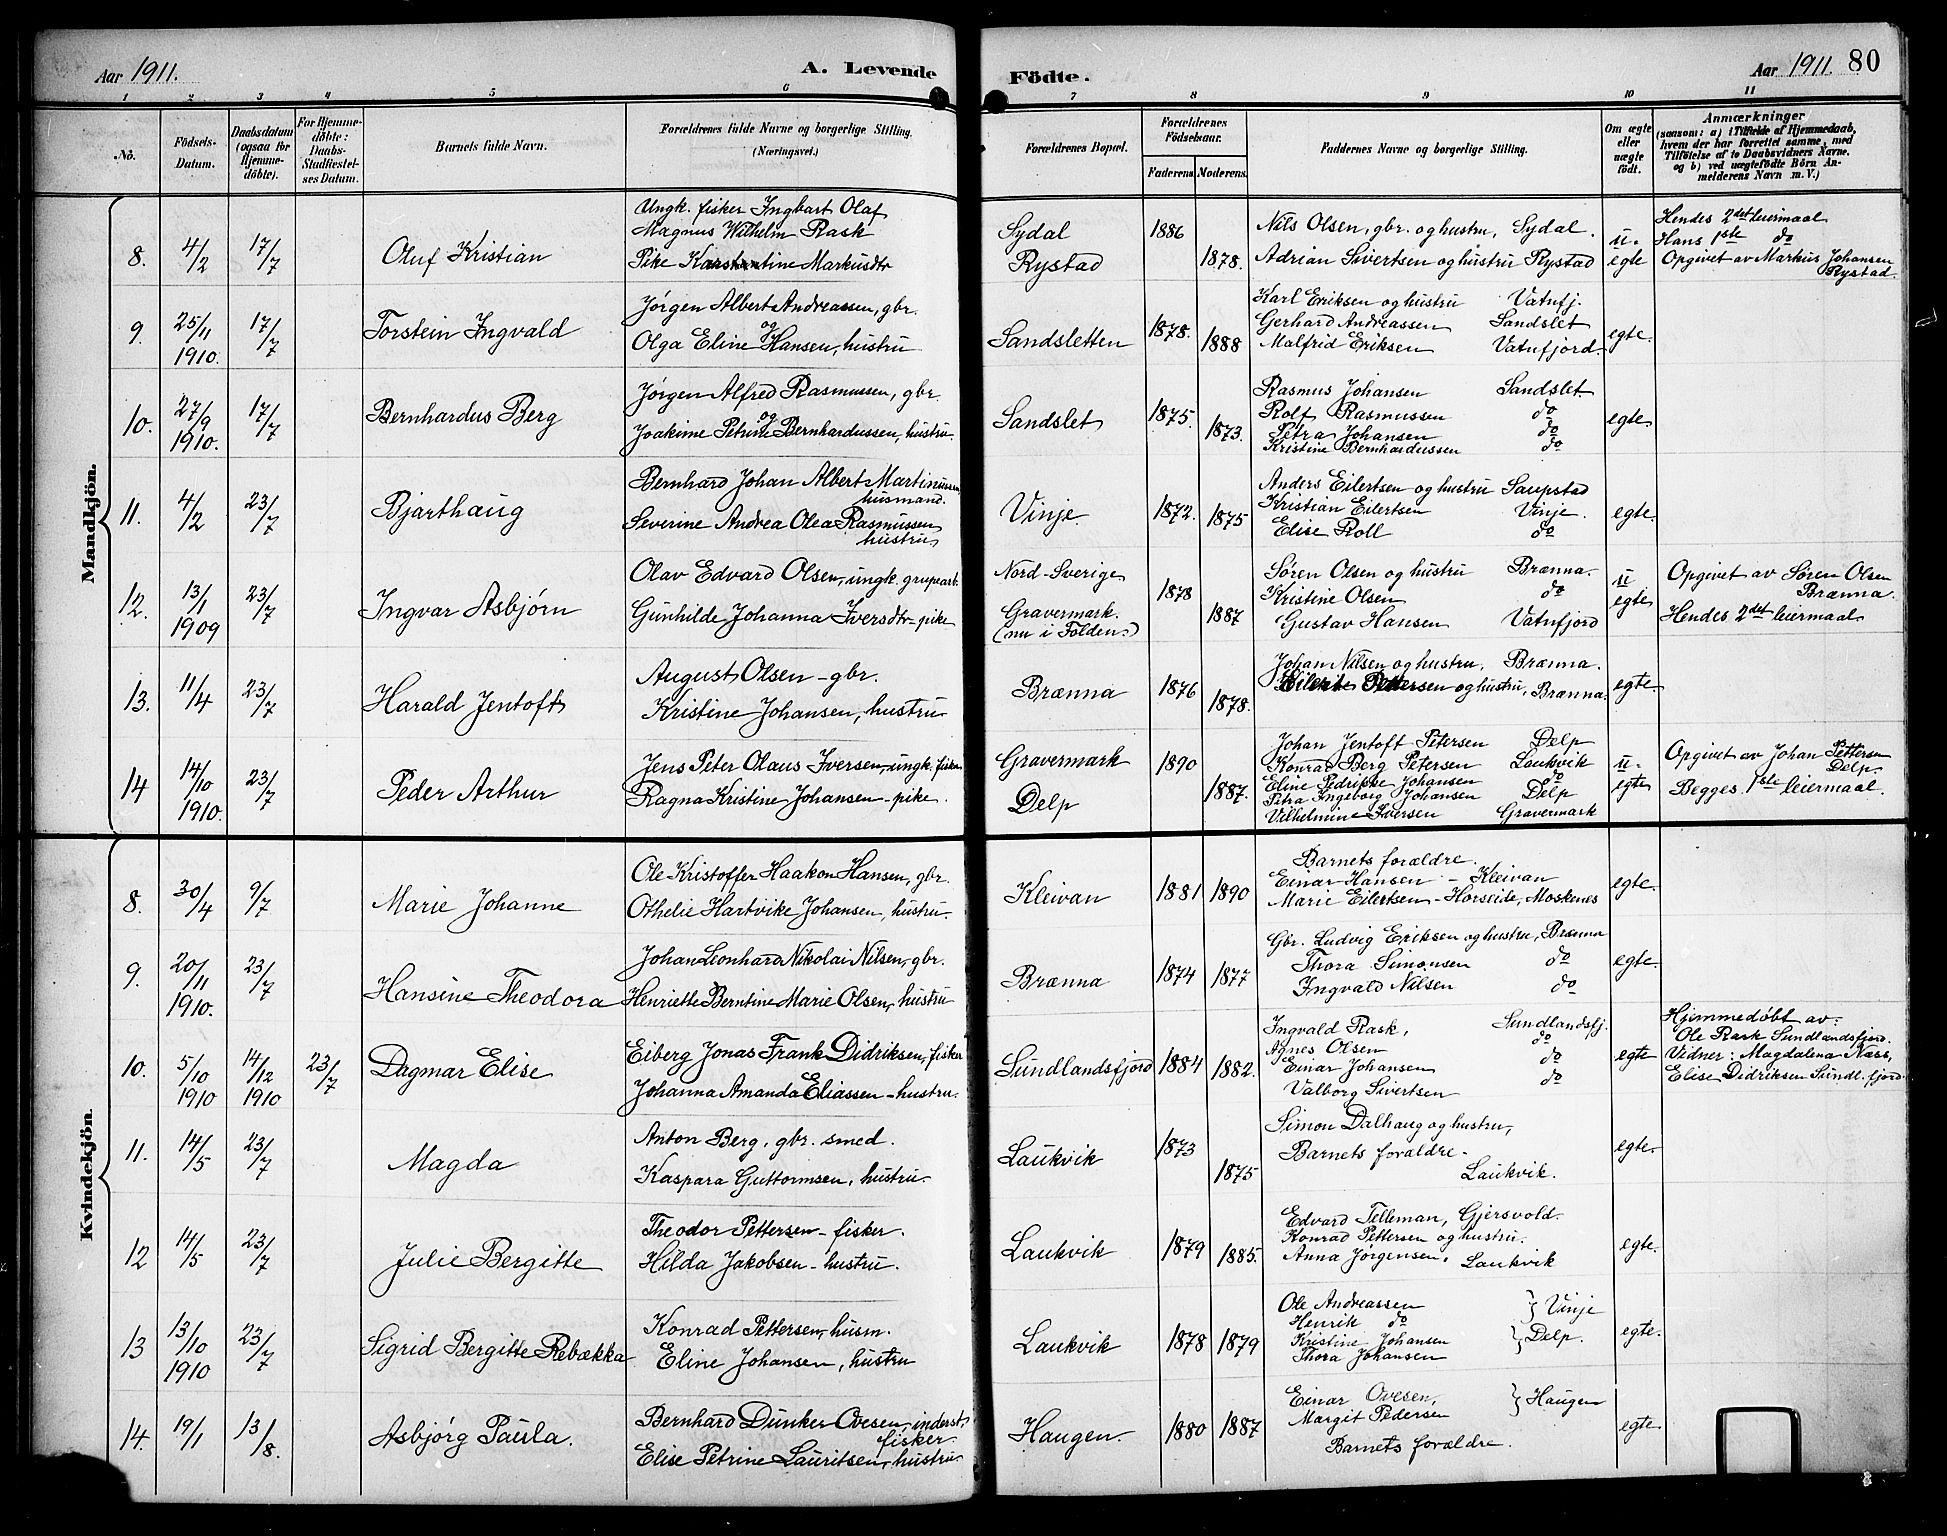 Aar 1911.
A. Levende
Födte.
Aar 1911. 80
1 2 3 4 5 6 7 8 9 10 11
No.
Födsels-Datum.
Daabsdatum (ogsaa for Hjemmedöbte).
For Hjemmedöbte: Daabs-Stadfæstelses Datum.
Barnets fulde Navn.
Forældrenes fulde Navne og borgerlige Stilling. (Næringsvei.)
Forældrenes Bopæl.
Forældrenes Födselsaar.
Faderens. Moderens.
Faddernes Navne og borgerlige Stilling.
Om ægte eller uægte födt.
Anmærkninger
(saasom: a) i Tilfælde af Hjemmedaab, hvem der har forrettet samme, med Tilföielse af to Daabsvidners Navne. og b) ved uægtefödte Börn Anmelderens Navn m. V.)
Mandkjön.
8. 4/2 17/7 Oluf Kristian
Ungk. fisker Ingbart Olaf
Magnus Wilhelm Rask
Pike Karstentine Markusdtr
Sydal
Rystad
1886 1878.
Nils Olsen, gbr. og hustru, Sydal.
Adrian Sivertsen og hustru Rystad
u.
egte
Hendes 2det leiermaal
Hans 1ste do
Opgivet av Markus Johansen
Rystad.
9. 25/11 1910. 17/7 Torstein Ingvald
Jörgen Albert Andreassen, gbr.
og
Olga Eline Hansen, hustru
Sandsletten 1878. 1888
Karl Eriksen og hustru Vatnfj.
Gerhard Andreassen Sandslet
Malfrid Eriksen Vatnfjord.
egte.
10. 27/9 1910. 17/7 Bernhardus Berg
Jörgen Alfred Rasmussen, gbr.
og
Joakime Petrine Bernhardussen, hustru.
Sandslet 1875. 1873.
Rasmus Johansen Sandslet.
Rolf Rasmussen do
Petra Johansen do
Kristine Bernhardussen do
egte.
11. 4/2 23/7 Bjarthaug
Bernhard Johan Albert Martinussen,
husmand.
Severine Andrea Olea Rasmussen
hustru
Vinje. 1872. 1875
Anders Eilertsen og hustru Saupstad
Kristian Eilertsen Vinje.
Elise Roll do
egte.
12. 13/1 1909 23/7 Ingvar Asbjørn
Olav Edvard Olsen, ungk. grupearb.
Gunhilde Johanna Iversdtr. pike
Nord-Sverige
Gravermark.
(nu i Folden)
1878 1887
Søren Olsen og hustru Brænna.
Kristine Olsen do
Gustav Hansen Vatnfjord
u
egte
Opgivet av Søren Olsen
Brænna.
Hendes 2det leiermaal
13. 11/4 23/7 Harald Jentoft
August Olsen - gbr.
Kristine Johansen, hustru
Brænna 1876 1878.
Johan Nilsen og hustru, Brænna.
Pettersen og hustru, Brænna.
egte.
14 14/10 1910. 23/7 Peder Arthur
Jens Peter Olaus Iversen, ungk. fisker
Ragna Kristine Johansen - pike.
Gravermark
Delp
1890 1887.
Johan Jentoft Petersen Delp
Konrad Berg Petersen Laukvik
Eline Pedrikke Johansen do
Petra Ingeborg Johansen Delp
Vilhelmine Iversen Gravermark
u.
egte
Opgivet av Johan Pettersen
Delp.
Begges 1ste leiermaal.
Kvindekjön.
8. 30/4 9/7 Marie Johanne
Ole Kristoffer Haakon Hansen, gbr.
Othelie Hartvike Johansen, hustru.
Kleivan 1881 1890
Barnets forældre.
Einar Hansen - Kleivan
Marie Eilertsen - Horseide, Moskenes
egte.
9. 20/11 1910. 23/7 Hansine Theodora
Johan Leonhard Nikolai Nilsen, gbr.
Henriette Berntine Marie Olsen, hustru
Brænna 1874 1877
Gbr. Ludvig Eriksen og hustru, Brænna
Thora Simonsen do
Ingvald Nilsen do
egte.
10. 5/10 1910 14/12 1910 23/7 Dagmar Elise
Eiberg Jonas Frank Didriksen, fisker
Johanna Amanda Eliassen - hustru.
Sundlandsfjord 1884 1882.
Ingvald Rask, Sundlandsfj.
Agnes Olsen do
Einar Johansen do
Valborg Sivertsen do
egte
Hjemmedøbt av:
Ole Rask Sundlandsfjord.
Vidner: Magdalena Næss,
Elise Didriksen Sundl.fjord.
11. 14/5 23/7 Magda
Anton Berg, gbr. smed.
Kaspara Guttormsen, hustru.
Laukvik 1873 1875
Simon Dalhaug og hustru,
Barnets forældre -
Laukvik.
egte.
12 14/5 23/7 Julie Bergitte
Theodor Pettersen - fisker.
Hilda Jakobsen - hustru.
Laukvik 1879 1885.
Edvard Telleman, Gjersvold.
Konrad Pettersen og hustru.
Anna Jørgensen. Laukvik
egte.
13 13/10 1910 23/7 Sigrid Bergitte Rebækka
Konrad Pettersen, husm.
Eline Johansen, hustru
Laukvik 1878 1879
Ole Andreassen } Vinje
Henrik do
Kristine Johansen } Delp.
Thora Johansen
egte.
14. 19/1 13/8. Asbjørg Paula.
Bernhard Dunker Ovesen, inderst
fisker
Elise Petrine Lauritsen, hustru
Haugen. 1880 1887
Einar Ovesen, } Haugen
Margit Pedersen
Barnets forældre.
egte.